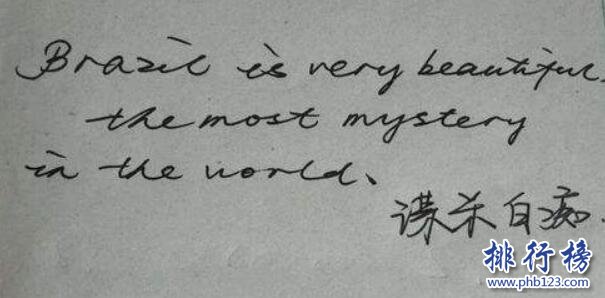 Brazil is very beautiful.
the most mystery
in the world、
谋杀白痴.
排行榜
www.phb123.com